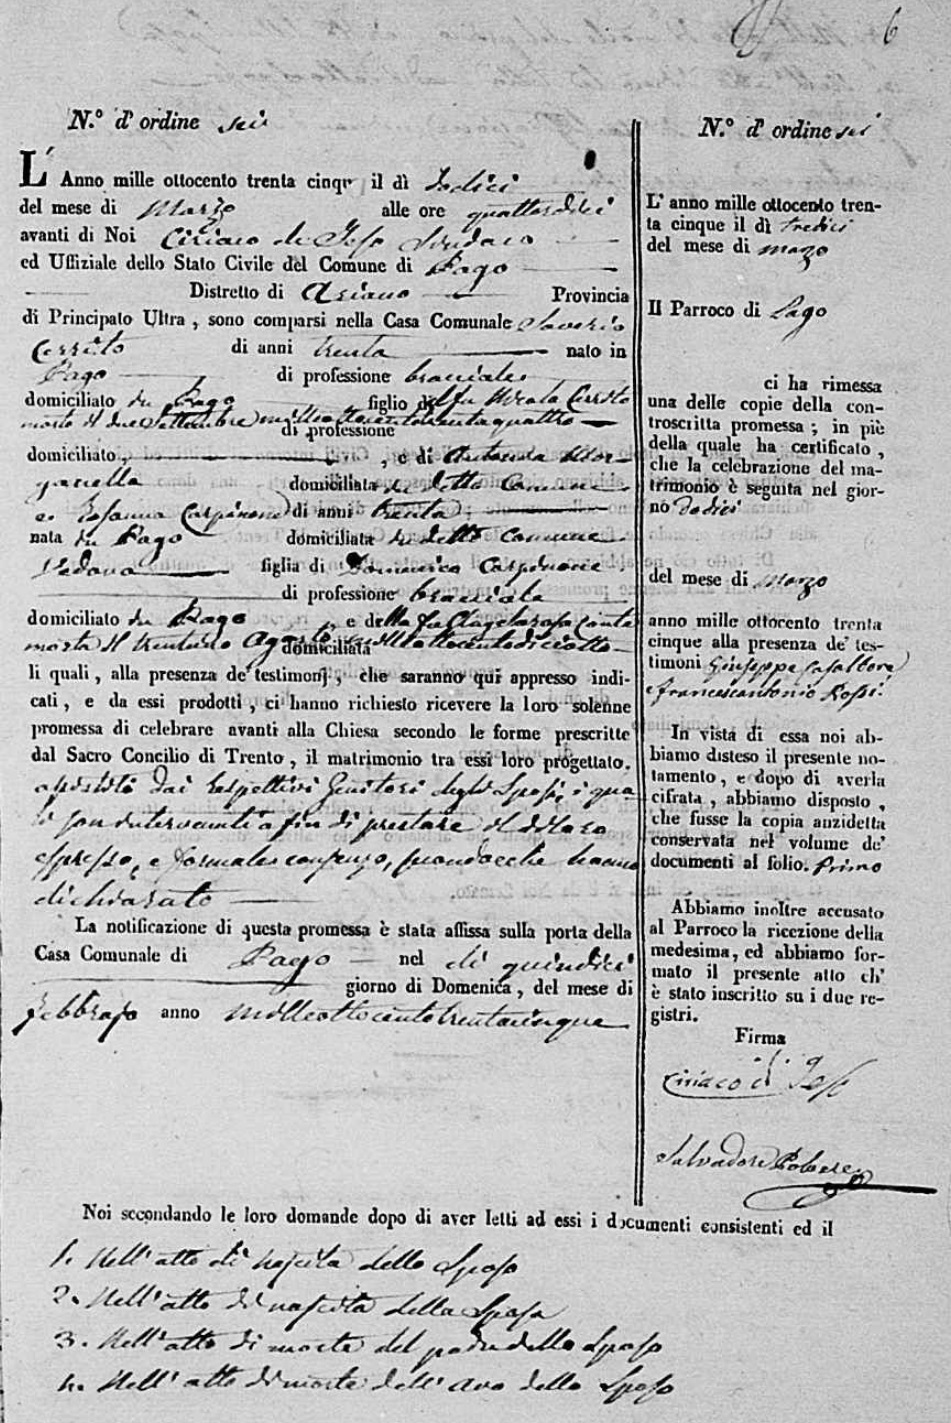 6
N.º d' ordine sei
L' Anno mille ottocento trenta cinque il dì dodici
del mese di Marzo alle ore quattordici
avanti di Noi Ciriaco de Jeso Sindaco
ed Uffiziale dello Stato Civile del Comune di Pago
Distretto di Ariano Provincia
di Principato Ultra , sono comparsi nella Casa Comunale Saverio
Cerrito di anni trenta nato in
Pago di professione bracciale
domiciliato in Pago figlio del fu Nicola Cerrito
morto il due Settembre milleottocentotrentaquattro
di professione
domiciliato , e di Antonia Mor-
ganella domiciliata in detto Comune
e Rosanna Carpinone di anni trenta
nata in Pago domiciliata in detto Comune
Vedova figlia di Domenico Carpinone
di professione bracciale
domiciliato in Pago e della fu Angelarosa Conte
morta il trentuno Agosto milleottocentodiciotto
domiciliata
li quali , alla presenza de' testimonj , che saranno qui appresso indi-
cati , e da essi prodotti , ci hanno richiesto ricevere la loro solenne
promessa di celebrare avanti alla Chiesa secondo le forme prescritte
dal Sacro Concilio di Trento , il matrimonio tra essi loro progettato.
assistiti dai rispettivi Genitori degli Sposi, i qua
li son intervenuti a fin di prestare il di loro
espresso, e formale consenso, secondocchè hanno
dichiarato
La notificazione di questa promessa è stata affissa sulla porta della
Casa Comunale di Pago nel dì quindici
giorno di Domenica , del mese di
Febbrajo anno milleottocentotrentacinque
N.º d' ordine sei
L' anno mille ottocento tren-
ta cinque il dì tredici
del mese di marzo
Il Parroco di Pago
ci ha rimessa
una delle copie della con-
troscritta promessa ; in piè
della quale ha certificato ,
che la celebrazione del ma-
trimonio è seguita nel gior-
no dodici
del mese di marzo
anno mille ottocento trenta
cinque alla presenza de' tes-
timoni Giuseppe Casalbore
e Francescantonio Rossi
In vista di essa noi ab-
biamo disteso il presente no-
tamento , e dopo di averla
cifrata , abbiamo disposto ,
che fusse la copia anzidetta
conservata nel volume de'
documenti al folio. Primo
Abbiamo inoltre accusato
al Parroco la ricezione della
medesima, ed abbiamo for-
mato il presente atto ch'
è stato inscritto su i due re-
gistri.
Firma
Ciriaco de Jeso
Salvadore Polvere
Noi secondando le loro domande dopo di aver letti ad essi i documenti consistenti ed il
1. Nell' atto di nascita dello Sposo
2. Nell' atto di nascita della Sposa
3. Nell' atto di morte del padre dello Sposo
4. Nell' atto di morte dell' Avo dello Sposo